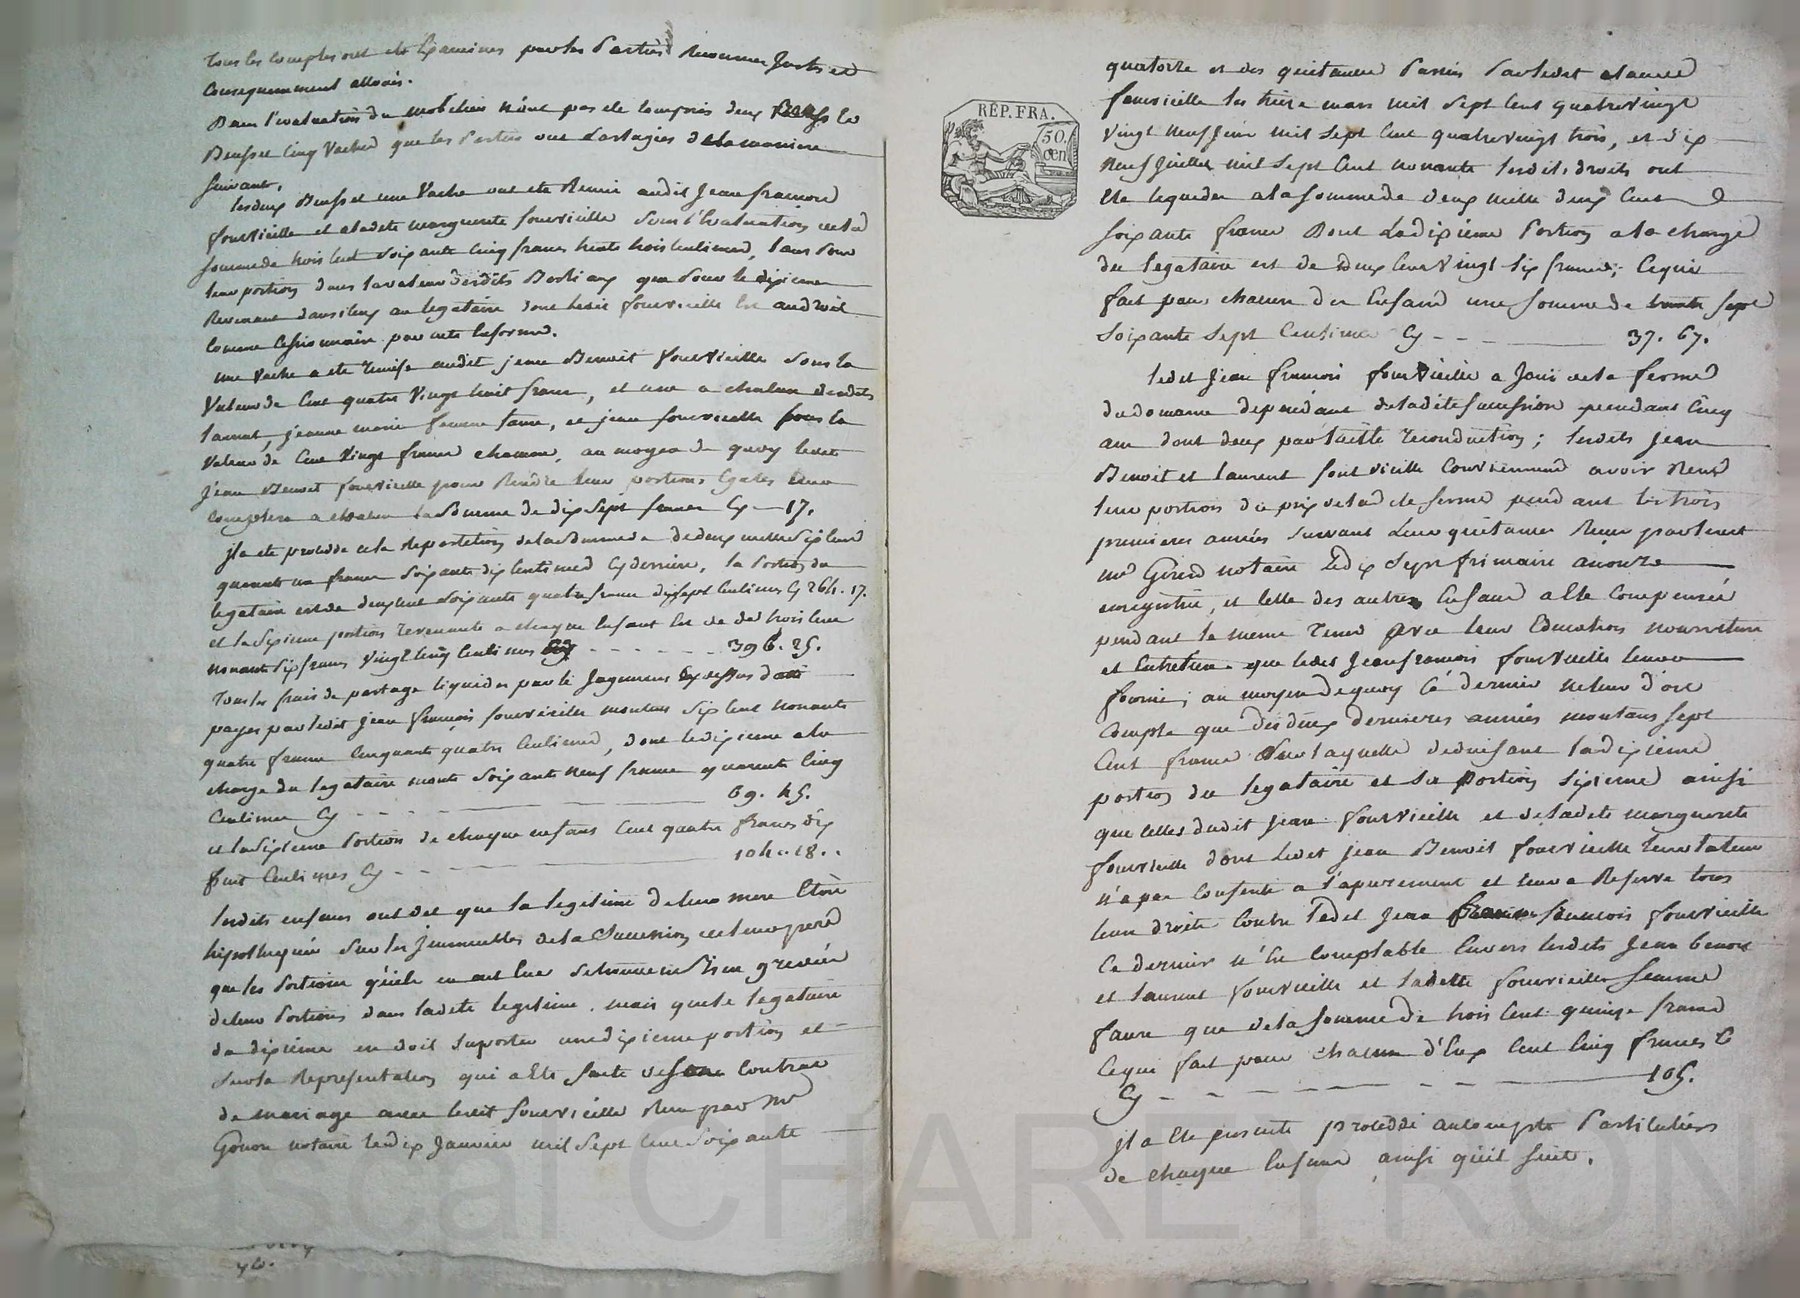 tous les comptes ont été Examinés par les Parties Reconnus Justes et
Consequemment alloués.
Dans l'evaluation du mobelier n'ont pas ete Compris deux
Beufs et Cinq Vaches que les Parties ont Partagées de la maniere
suivante,
les deux Beufs et une Vache ont ete Remis audit Jean francois
fourvieille et a ladete marguerite fourvieille sous l'Evaluation de la
somme de trois Cent soixante Cinq francs trente trois Centimes, tant pour
leur portion dans la valeur desdits Bestiaux que pour le dixieme
Revenant dans iceux au legataire dont ledit fourvieille Est audroit
Comme Cessionnaire par acte Enforme.
une Vache a ete remise audit jean Benoit fourvieille sous la
Valeur de Cent quatre Vingt huit francs, et une a chacun desdits
laurent, jeanne marie femme faure, et jean fourvieille sous la
Valeur de Cent Vingt francs chacune, au moyen de quoy ledit
Jean Benoit fourvieille pour Rendre leur portions Egales leur
Comptera a chacun la Somme de dix sept francs Cy — 17.
Jl a ete procedé a la Repartition de la Somme de deux mille six Cent
quarante un francs soixante dix Centimes Cy derriere, la Portion du
legataire est de deux Cent soixante quatre francs dix sept Centimes Cy 264. 17.
et la sixieme portion revenante a chaque Enfant Est de de trois Cent
nonante six francs vingt Cinq Centimes Cy - - - - - - 396. 25.
Tous les frais de partage liquidés par le Jugement Cy dessus daté
payés par ledit Jean françois fourvieille montent six Cent nonante
quatre francs Cinquante quatre Centimes, dont le dixieme a la
charge du legataire monte soixante neuf francs quarante Cinq
Centimes Cy - - - 69. 45.
et la sixieme Portion de chaque enfans Cent quatre francs dix
huit Centimes Cy - - - 104. 18.
lesdits enfans ont dit que la legitime de leur mere Etoit
hipothequée sur les Jmmeubles de la Succession de leur pere
que les Portions qu'ils en ont Eue se trouvent grevées
de leur Portions dans ladete legitime. mais que le legataire
du dixieme en doit suporter une dixieme portion et -
sur la Representation qui a Ete faite de son Contrat
de mariage avec ledit fourvieille Reçu par Me
Gonon notaire le dix Janvier mil Sept Cent Soixante
REP. FRA.
50
cen
quatorze et des quittances Passées Par ledit
fourvieille les treize mars mil Sept Cent quatrevingt
vingt neuf juin mil Sept Cent quatrevingt trois, et dix
Neuf Juillet mil Sept Cent nonante lesdits droits ont
Ete liquidés a la somme de Deux mille deux Cent
soixante francs Dont La dixieme Portion a la charge
du legataire est de Deux Cent Vingt six francs; Cequi
fait pour chacun des Enfans une Somme de trente sept
soixante sept Centimes Cy - - - 37. 67.
ledit Jean francois fourvieille a Joui de la ferme
du domaine dependant de ladite succession pendant Cinq
ans dont deux par taitte reconduction; lesdits Jean
Benoit et laurent fourvieille Conviennent avoir Reçu
leur portion du prix de lad ete ferme pendant les trois
premieres années suivant Leur quittance Reçue par ledit
me Girerd notaire Ledix Sept frimaire an onze
enregistrée, et Celle des autres Enfans a Ete Compensée
pendant le meme tems avec leur Education nourriture
et Entretien que ledit Jean francois fourvieille leur a
fourni; au moyen de quoy Ce dernier ne leur doit
Compte que des deux dernieres années montans sept
Cent francs Sur laquelle deduisant la dixieme
portion du legataire et sa Portion Sixieme ainsi
que Celles dudit jean fourvieille et de ladete marguerite
fourvieille dont ledit Jean Benoit fourvieille leur tuteur
n'a pas Consenti a l'apurement et leur a Reservé tous
leur droits Contre ledit Jean francois fourvieille
Ce dernier n'Est Comptable Envers lesdits Jean benoit
et laurent fourvieille et ladete fourvieille femme
faure que de la somme de trois Cent quinze francs
Cequi fait pour chacun d'Eux Cent Cinq francs
Cy - - - 105.
Jl a Ete Ensuite procedé aucompte Particuliers
de chaque Enfans ainsi qu'il Suit.
Pascal CHAREYRON